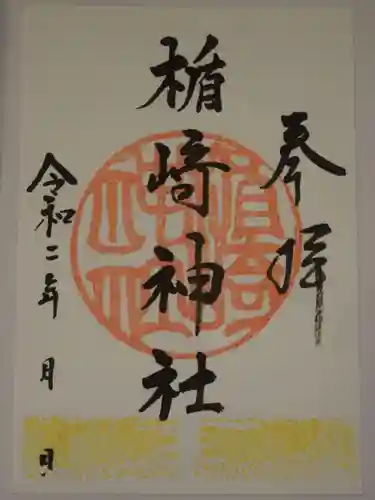 奉拝
楯崎神社
令和二年 月 日